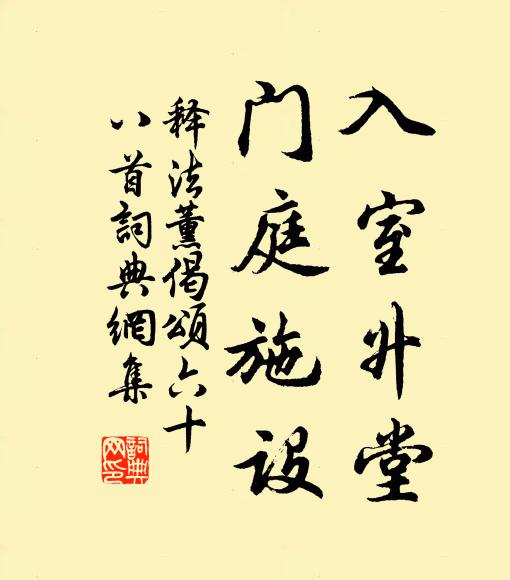 入室升堂
門庭施設
释法薰偈頌六十
八首詞典網集
詞典網印